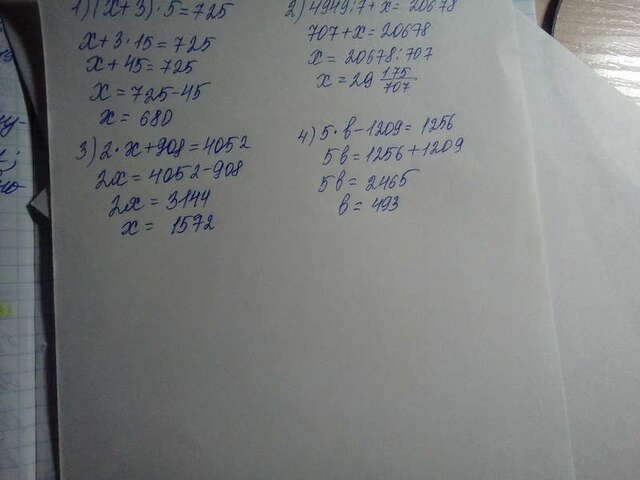 1) (x+3)·5=725
x+3·15=725
x+45=725
x=725-45
x=680
3) 2·x+908=4052
2x=4052-908
2x=3144
x=1572
2) 4949:7+x=20678
707+x=20678
x=20678:707
x=29 175/707
4) 5·b-1209=1256
5b=1256+1209
5b=2465
b=493